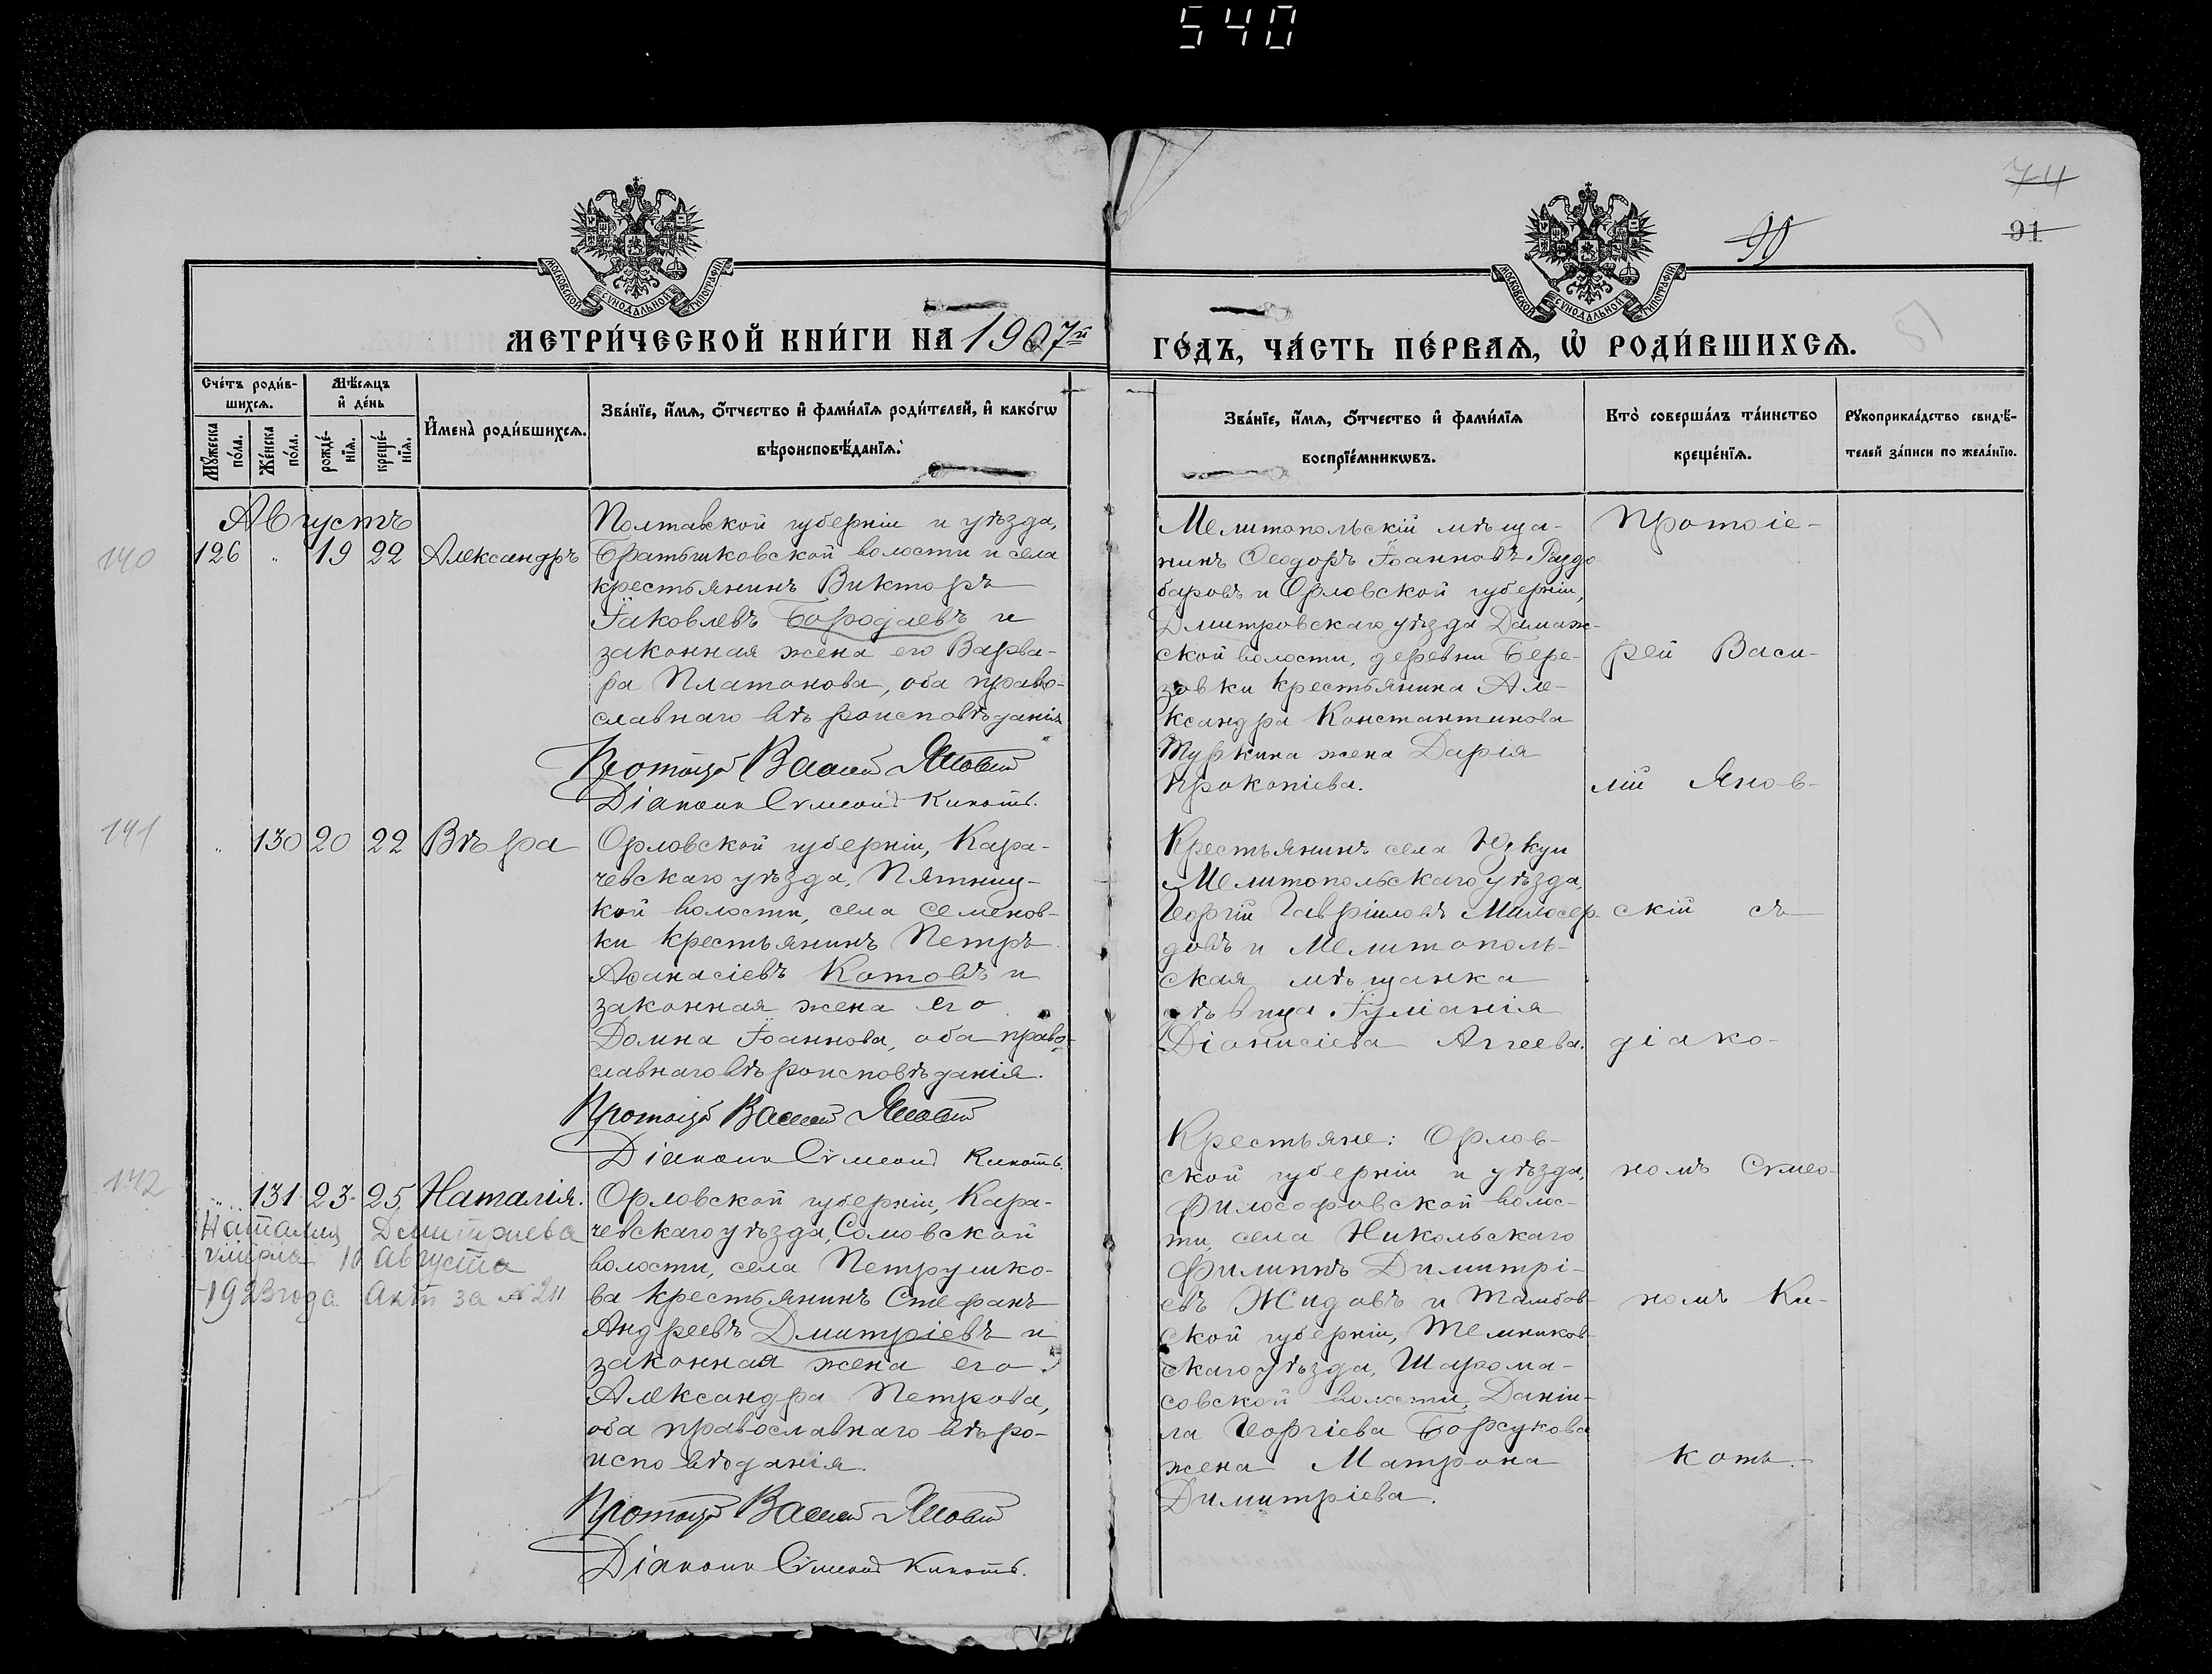 540
74
91
90
МОСКОВСКОЙ СѴНОДАЛЬНОЙ ТИПОГРАФІИ
МОСКОВСКОЙ СѴНОДАЛЬНОЙ ТИПОГРАФІИ
МЕТРИ́ЧЕСКОЙ КНИ́ГИ НА 1907й
ГО́ДЪ, ЧА́СТЬ ПЕ́РВАѦ, Ѡ҆ РОДИ́ВШИХСѦ.
Сче́тъ роди́в-
шихсѧ.
Мꙋ́жеска по́ла.
Же́нска по́ла.
Мѣ́сѧцъ
и҆ де́нь
рожде́-
нїѧ.
креще́-
нїѧ.
И҆мена̀ роди́вшихсѧ.
Зва́нїе, и҆́мѧ, ѻ҆́тчество и҆ фами́лїѧ роди́телей, и҆ како́гѡ
вѣроисповѣ́данїѧ.
Зва́нїе, и҆́мѧ, ѻ҆́тчество и҆ фами́лїѧ
воспрїе́мникѡвъ.
Кто̀ соверша́лъ та́инство
креще́нїѧ.
Рꙋкоприкла́дство свидѣ́-
телей за́писи по жела́нїю.
Августъ
140
126 „ 19 22 Александръ
Полтавской губерніи и уѣзда,
Братышковской волости и села
крестьянинъ Викторъ
Іаковлевъ Бородаевъ и
законная жена его Варва-
ра Платонова, оба право-
славнаго вѣроисповѣданія
Протоіер Василій Яновскій
Діаконъ Сѵмеонъ Кикоть.
Мелитопольскій мѣща-
нинъ Ѳеодоръ Іоанновъ Раздо-
баровъ и Орловской губерніи,
Дмитровскаго уѣзда Домах-
ской волости, деревни Бере-
зовки крестьянина Але-
ксандра Константинова
Туркина жена Дарія
Прокопіева.
141
„ 130 20 22 Вѣра
Орловской губерніи, Кара-
чевскаго уѣзда, Пятниц-
кой волости, села Семенов-
ки крестьянинъ Петръ
Аѳанасіевъ Котовъ и
законная жена его
Домна Іоаннова, оба право-
славнаго вѣроисповѣданія.
Протоіер Василій Яновскій
Діаконъ Сѵмеонъ Кикоть.
Крестьянинъ села
Мелитопольскаго уѣзда,
Георгій Гавріиловъ Милосер-
довъ и Мелитополь-
ская мѣщанка
дѣвица Іуліанія
Діонисіева Агеева.
142
„ 131 23 25 Наталія.
Наталия Дмитриева
умерла 10 Августа
1923 года Акт за № 211
Орловской губерніи, Кара-
чевскаго уѣзда, Сомовской
волости, села Петрушко-
ва крестьянинъ Стефанъ
Андреевъ Дмитріевъ и
законная жена его
Александра Петрова,
оба православнаго вѣро-
исповѣданія.
Протоіер Василій Яновскій
Діаконъ Сѵмеонъ Кикоть.
Крестьяне: Орлов-
ской губерніи и уѣзда,
Философовской волос-
ти, села Никольскаго
Филиппъ Димитрі-
евъ Жидовъ и Тамбов-
ской губерніи, Темников-
скаго уѣзда, Шарома-
совской волости, Даніи-
ла Георгіева Борсукова
жена Матрона
Димитріева.
Протоіе-
рей Васи-
лій Янов-
скій съ
діако-
номъ Сѵмео-
номъ Ки-
коть.